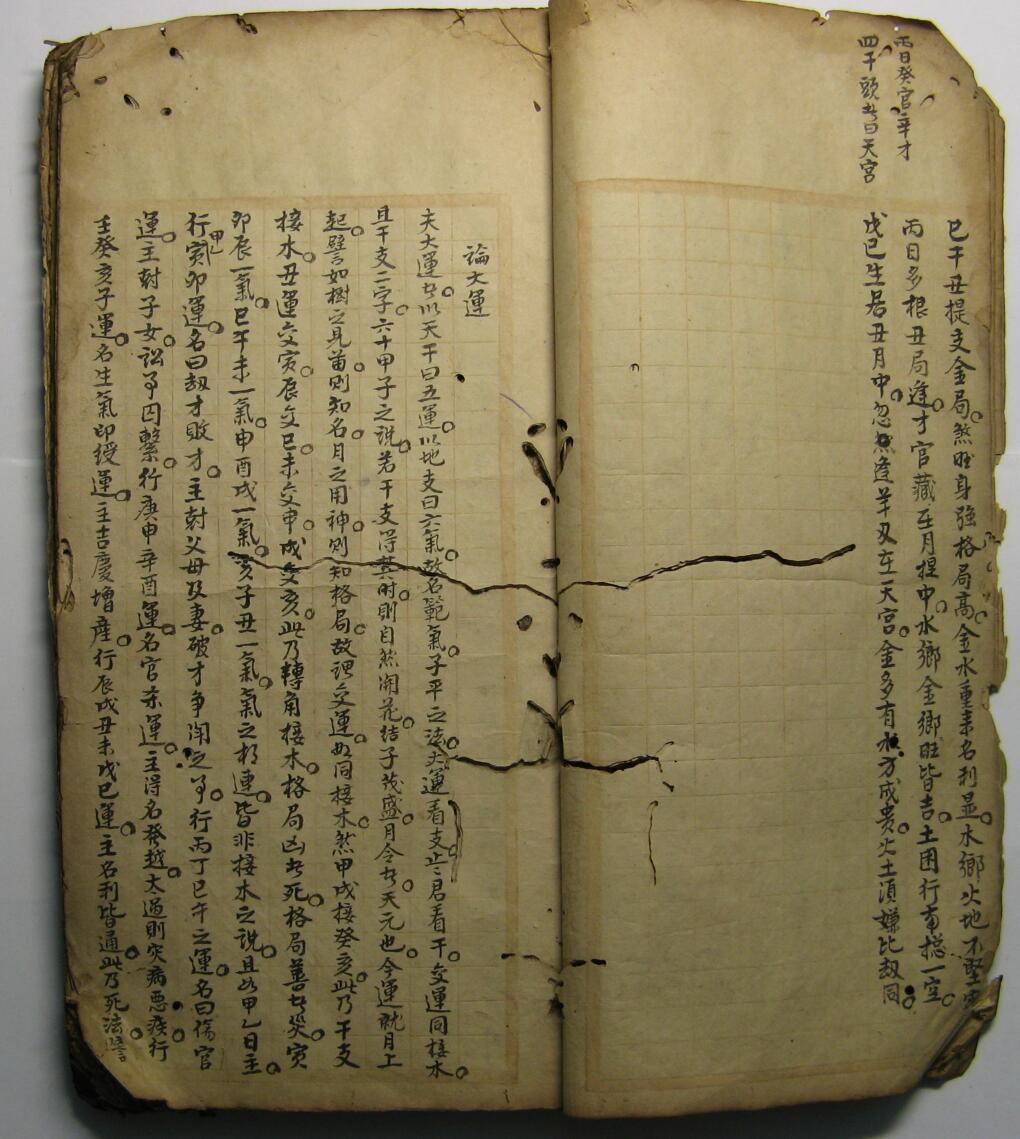 丙日癸官辛才
四干頭者曰天宮
巳干丑提支金局煞旺身強格局高金水重来名利显水鄉火地不堅牢
丙日多根丑局逢才官藏在月提中水鄉金鄉旺皆吉土困行南揔一空
戊巳生居丑月中忽然逢羊刃在天宮金多有水方成贵火土須嫌比劫同
論大運
夫大運者以天干曰五運以地支曰六氣故名範氣子平之法大運看支止君看干交運同接木
且干支二字六十甲子之説若干支得其时則自然開花結子茂盛月令者天元也今運就月上
起譬如樹之見苗則知名月之用神則知格局故謂交運如同接木煞甲戌接癸亥此乃干支
接木丑運交寅辰交巳未交申戌交亥此乃轉角接木格局凶者死格局善者災寅
卯辰一氣巳午未一氣申酉戌一氣亥子丑一氣氣之相連皆非接木之説且如甲乙日主
行甲乙寅卯運名曰劫才敗才主尅父母及妻破才争闹之事行丙丁巳午之運名曰傷官
運主尅子女訟事囚繫行庚申辛酉運名官杀運主得名發越太過則灾病惡疾行
壬癸亥子運名生氣印绶運主吉慶增産行辰戌丑未戊巳運主名利皆通此乃死法譬